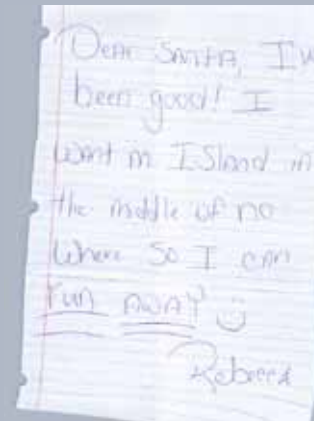 Dear Santa, I w
been good! I
want m ISland in
the middle of no
where So I can
run AWAY :)
Rebecca